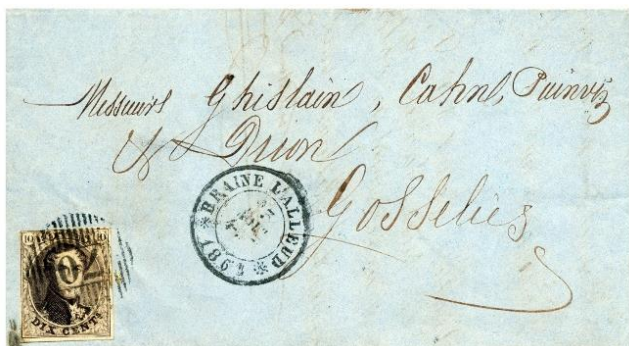 Messieurs Ghislain, Cahn,
& Drion
Gosselies
BRAINE L'ALLEUD
1861
10 10
DIX CENTS